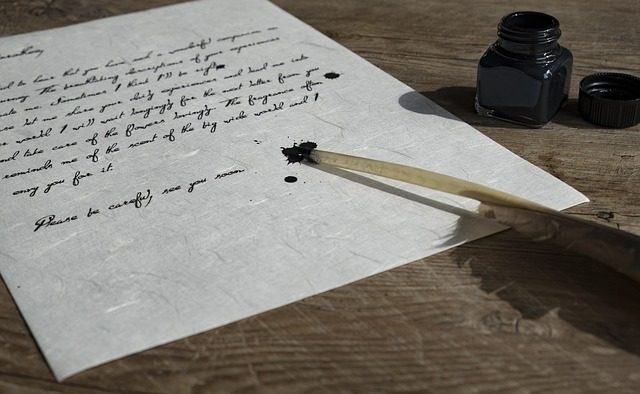 to hear that you have such a wonderful companion on
The breathtaking descriptions of your experiences
me. Sometimes I think I'll be right
but me share your daily experiences and lead me into
world. I will wait longingly for the next letter from you
and take care of the flowers lovingly. The fragrance of
reminds me of the scent of the big wide world and I
envy you for it.
Please be careful, see you soon